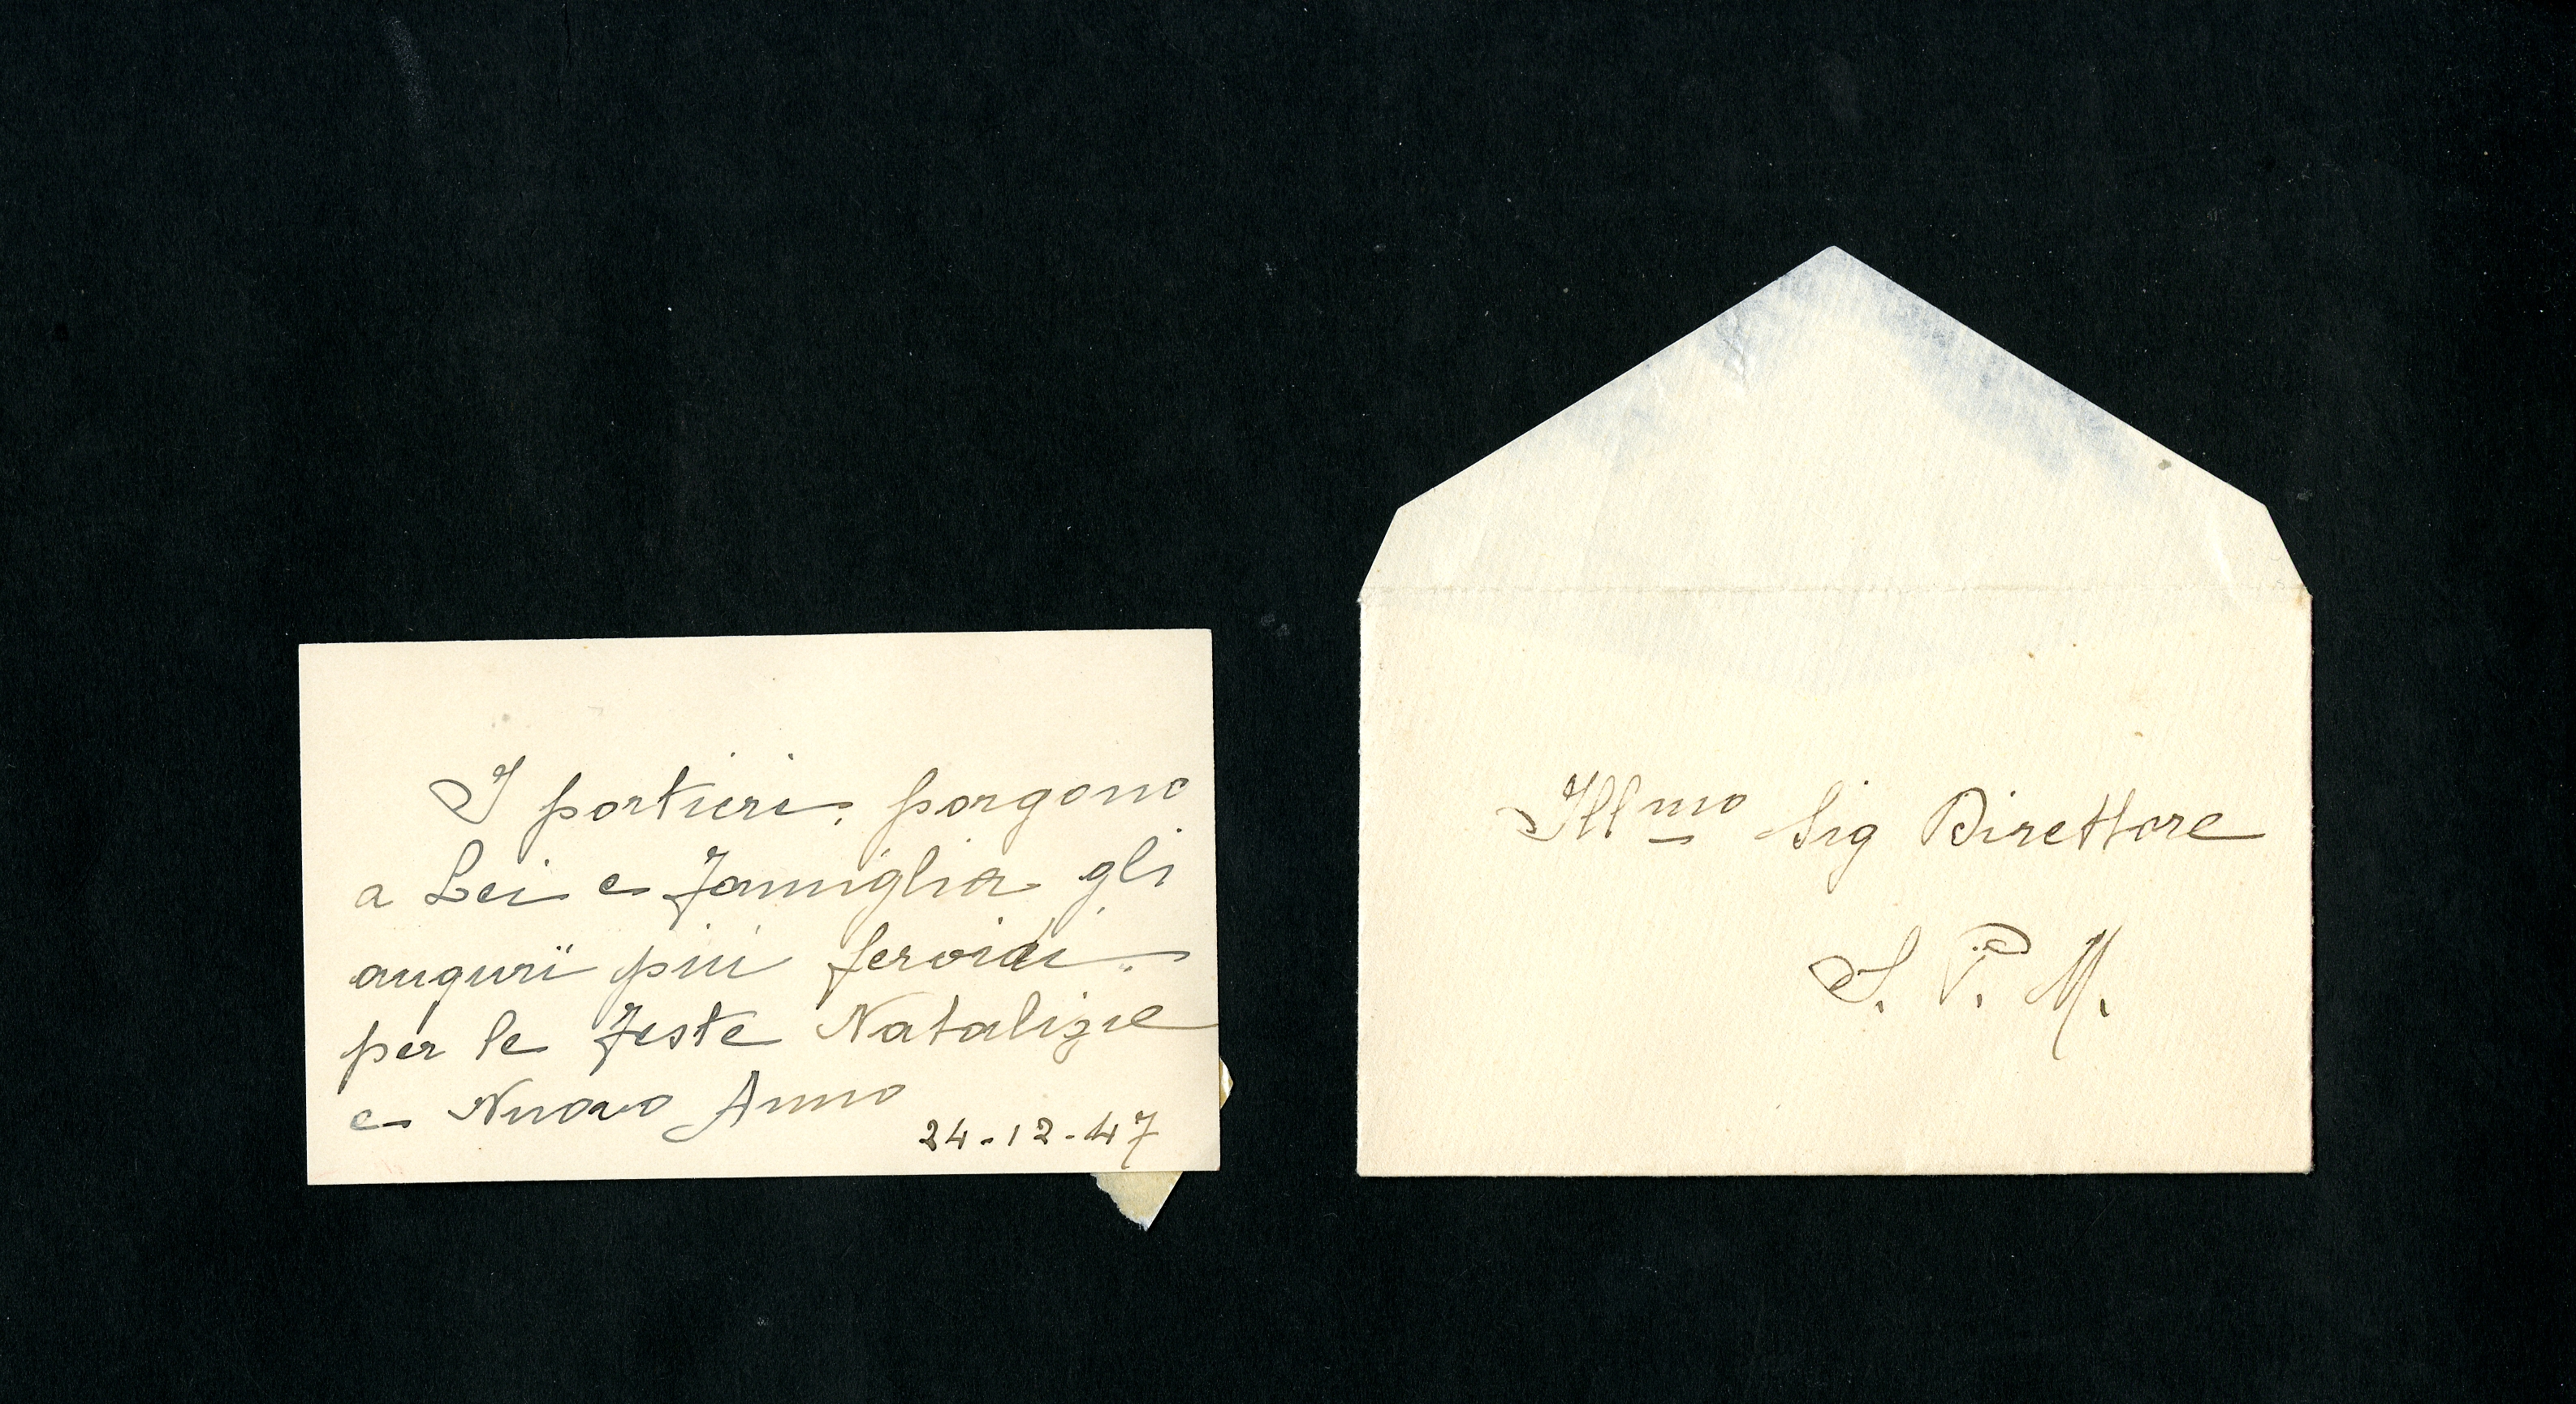 I portieri, porgono
a Lei e famiglia gli
auguri più fervidi
per le feste Natalizie
e Nuovo Anno
24-12-47
Ill.mo Sig Direttore
S. P. M.